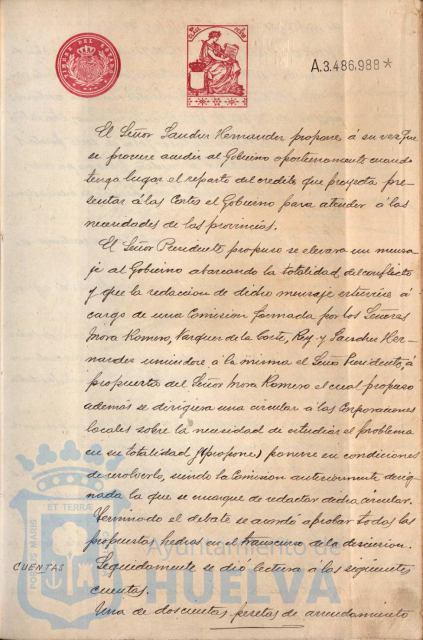 TIMBRE DEL ESTADO
A.3.486,988*
El Señor Sanchez Hernandez propone á su vez que
se procure acudir al Gobierno oportunamente cuando
tenga lugar el reparto del credito que proyecta pre-
sentar á las Cortes el Gobierno para atender á las
necesidades de las provincias.
El Señor Presidente propuso se elevara un mensa-
je al Gobierno abarcando la totalidad del conflicto
y que la redaccion de dicho mensaje estuviera á
cargo de una Comision formada por los Señores
Mora Romero, Vazquez de la Corte, Rey y Sanchez Her-
nandez uniendose á la misma el Señor Presidente, á
propuesta del Señor Mora Romero el cual propuso
además se dirigiera una circular á las Corporaciones
locales sobre la necesidad de estudiar el problema
en su totalidad y (propone) ponerse en condiciones
de resolverlo, siendo la Comision anteriormente desig-
nada la que se encargue de redactar dicha circular.
Terminado el debate se acordó aprobar todas las
propuestas hechas en el transcurso de la discusion.
CUENTAS Seguidamente se dió lectura á las siguientes
cuentas.
Una de doscientas pesetas de arrendamiento
PORTUS MARIS ET TERRAE
Ayuntamiento de
HUELVA